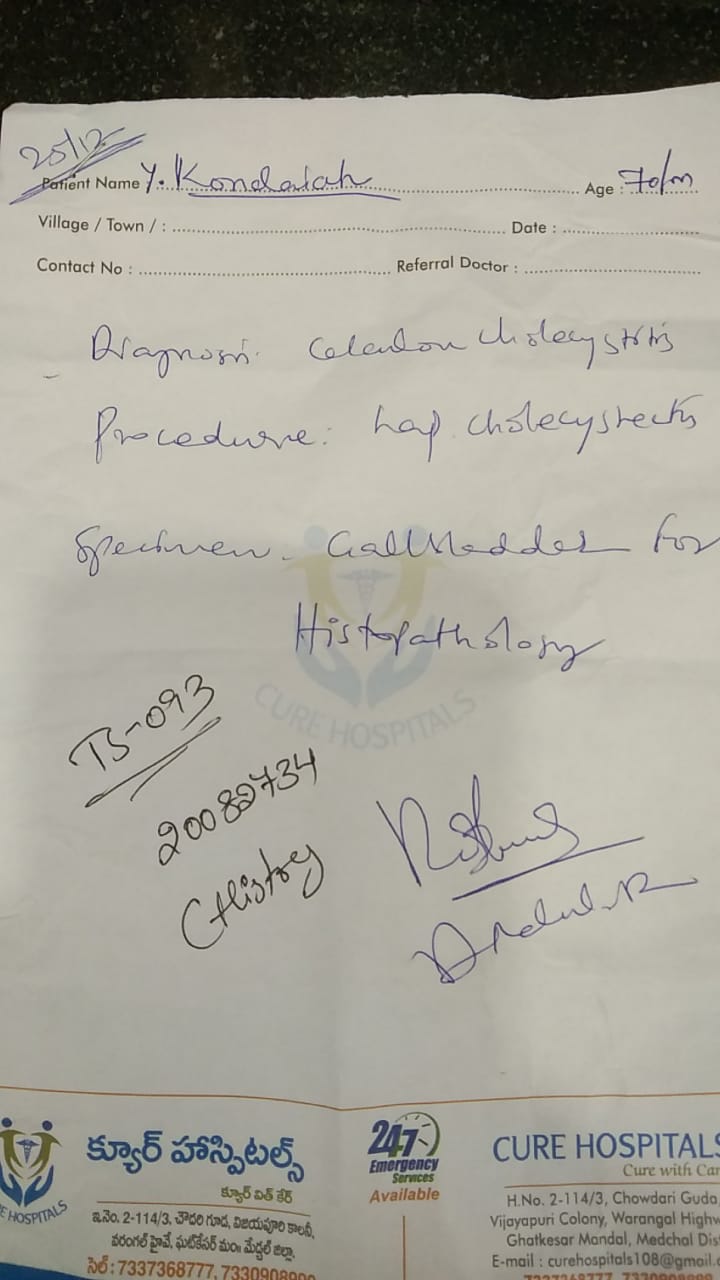 25/12
Patient Name Y. Kondaiah Age : 70/m
Village / Town / : Date :
Contact No : Referral Doctor :
Diagnosis: Cholecystitis
Procedure: Lap. Cholecystectomy
Specimen - Gallbladder for
Histopathology
CURE HOSPITALS
TS-093
20082734
CHistry
క్యూర్ హాస్పిటల్స్
క్యూర్ విత్ కేర్
ఇ.నెం. 2-114/3, చౌదరి గూడ, విజయపురి కాలనీ,
వరంగల్ హైవే, ఘట్‌కేసర్ మం॥ మేడ్చల్ జిల్లా.
సెల్ : 7337368777, 7330908900
24/7
Emergency
Services
Available
CURE HOSPITALS
Cure with Care
H.No. 2-114/3, Chowdari Guda,
Vijayapuri Colony, Warangal Highw
Ghatkesar Mandal, Medchal Dis
E-mail : curehospitals108@gmail.c